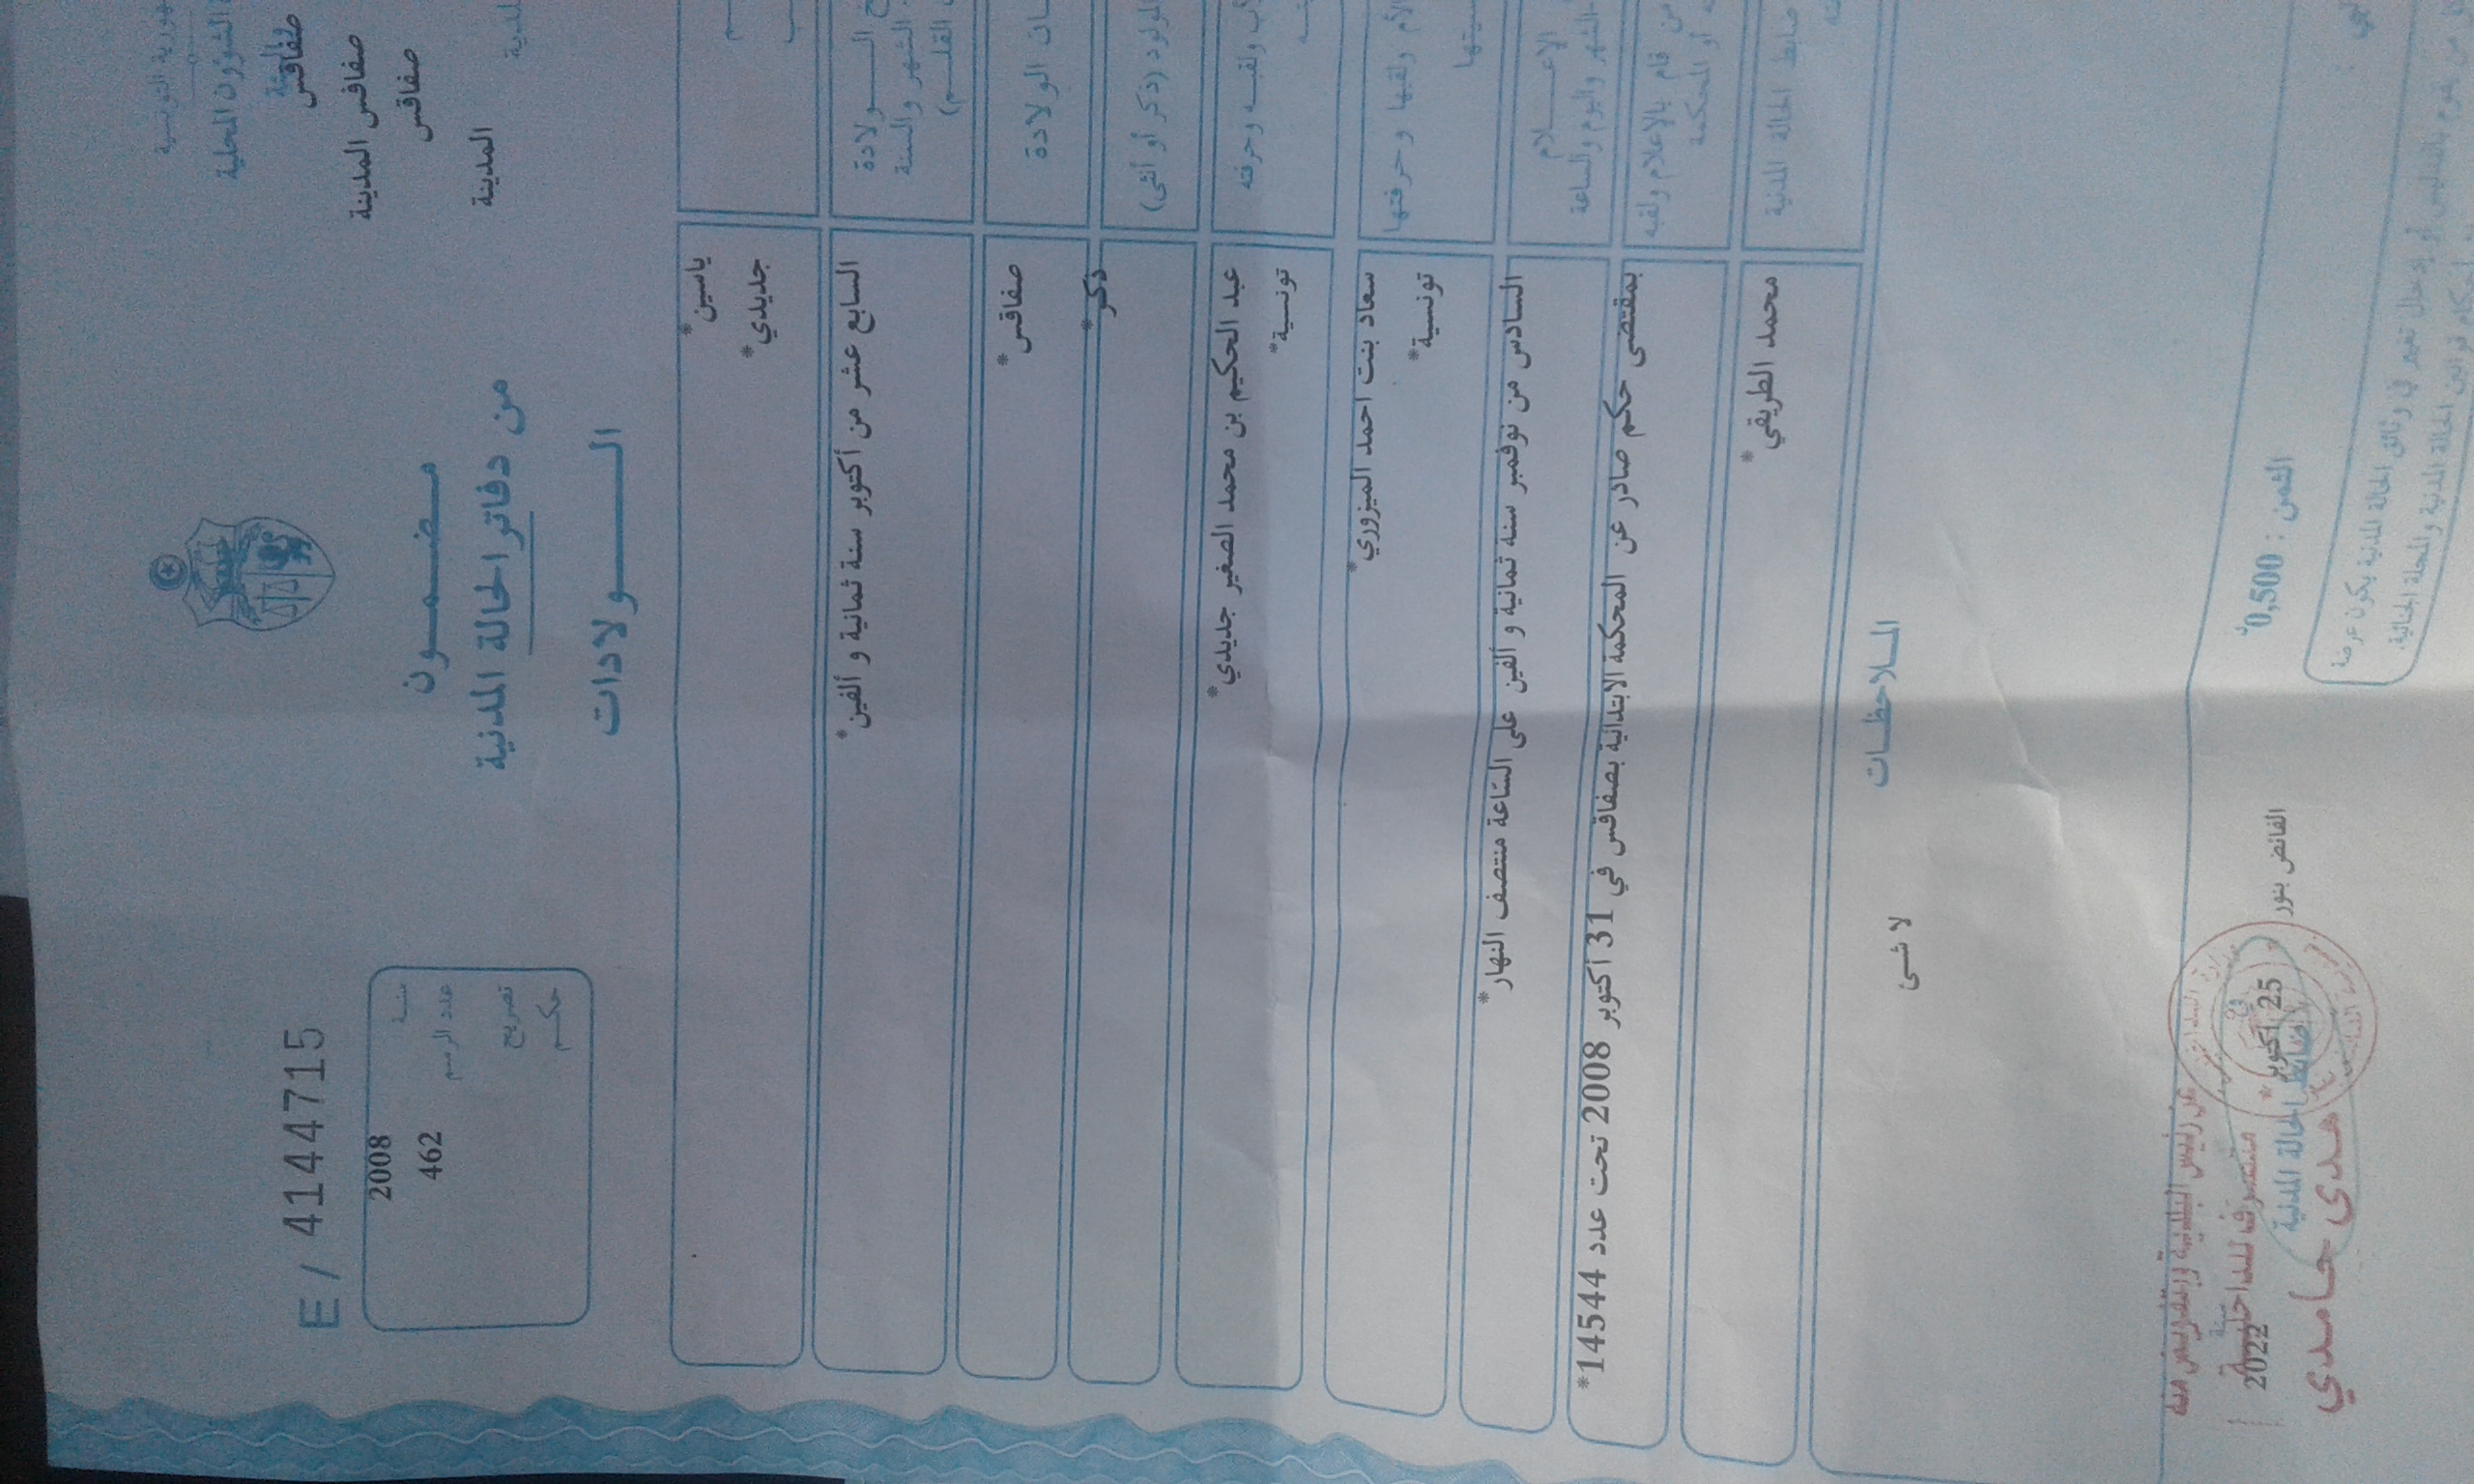 الشؤون المحلية
صفاقس
صفاقس المدينة
صفاقس
المدينة
E / 4144715
مضمون
من دفاتر الحالة المدنية
الولادات
سنة 2008
عدد الرسم 462
تصريح
حكم
ياسين*
جديدي*
الولادة
الشهر والسنة
السابع عشر من أكتوبر سنة ثمانية و ألفين*
الولادة
صفاقس*
(ذكر أو أنثى)
ذكر*
ولقبه وحرفته
عبد الحكيم بن محمد الصغير جديدي*
تونسية*
الأم ولقبها و حرفتها
سعاد بنت احمد الميزوري*
تونسية*
الإعلام
الشهر واليوم والساعة
السادس من نوفمبر سنة ثمانية و ألفين على الساعة منتصف النهار*
من قام بالإعلام ولقبه
أو المحكمة
بمقتضى حكم صادر عن المحكمة الابتدائية بصفاقس في 31 أكتوبر 2008 تحت عدد 14544*
ضابط الحالة المدنية
محمد الطريقي*
الملاحظات
لا شىء
الثمن : 0,500د
الفائض بنور في 25 أكتوبر سنة 2022
ضابط الحالة المدنية
عن رئيس البلدية وبتفويض منه
متصرف للداخلية
هدى حامدي
من يقوم بالتدليس أو إدخال تغيير في وثائق الحالة المدنية يكون عرضة
قوانين الحالة المدنية والمجلة الجنائية.